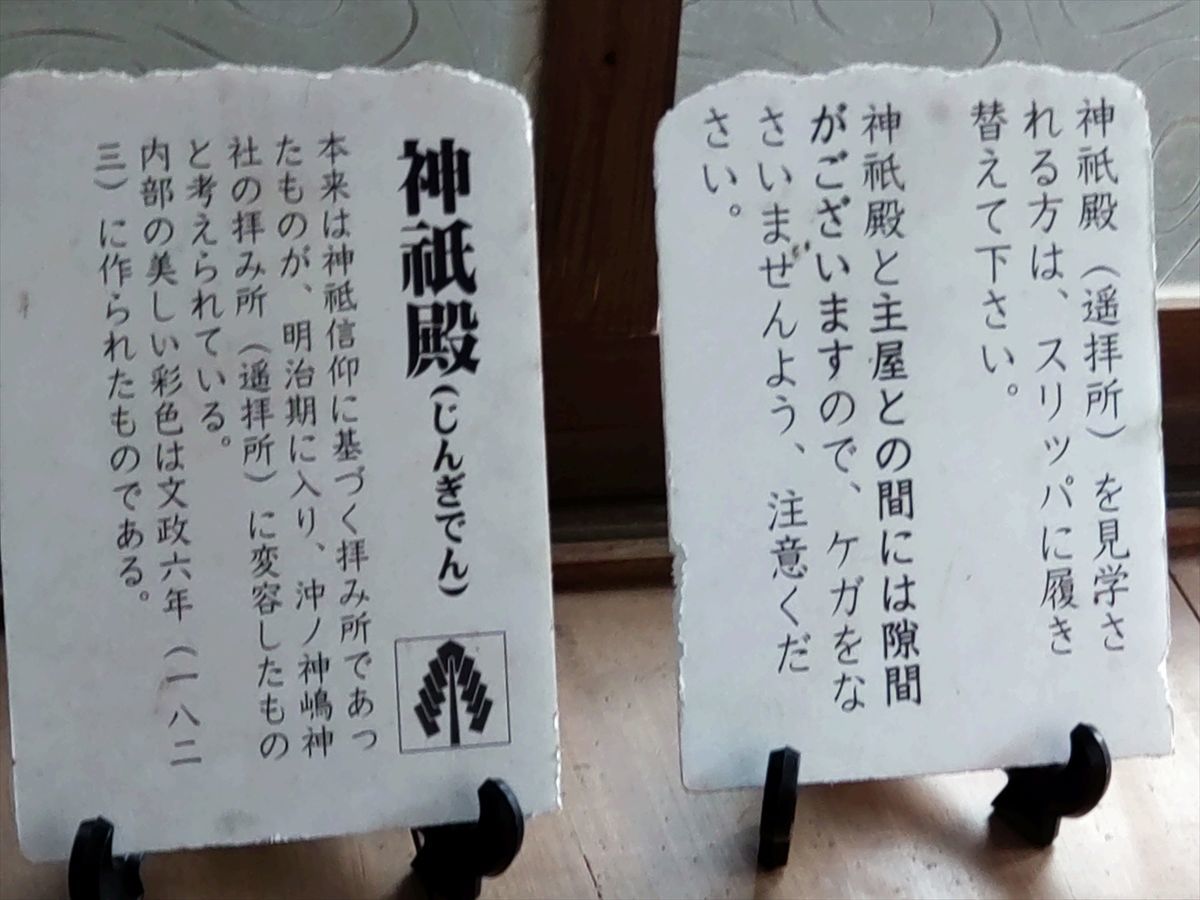 神祇殿(遥拝所)を見学さ
れる方は、スリッパに履き
替えて下さい。
神祇殿と主屋との間には隙間
がございますので、ケガをな
さいませんよう、注意くだ
さい。
神祇殿(じんぎでん)
本来は神祗信仰に基づく拝み所であっ
たものが、明治期に入り、沖ノ神嶋神
社の拝み所(遥拝所)に変容したもの
と考えられている。
内部の美しい彩色は文政六年(一八二
三)に作られたものである。